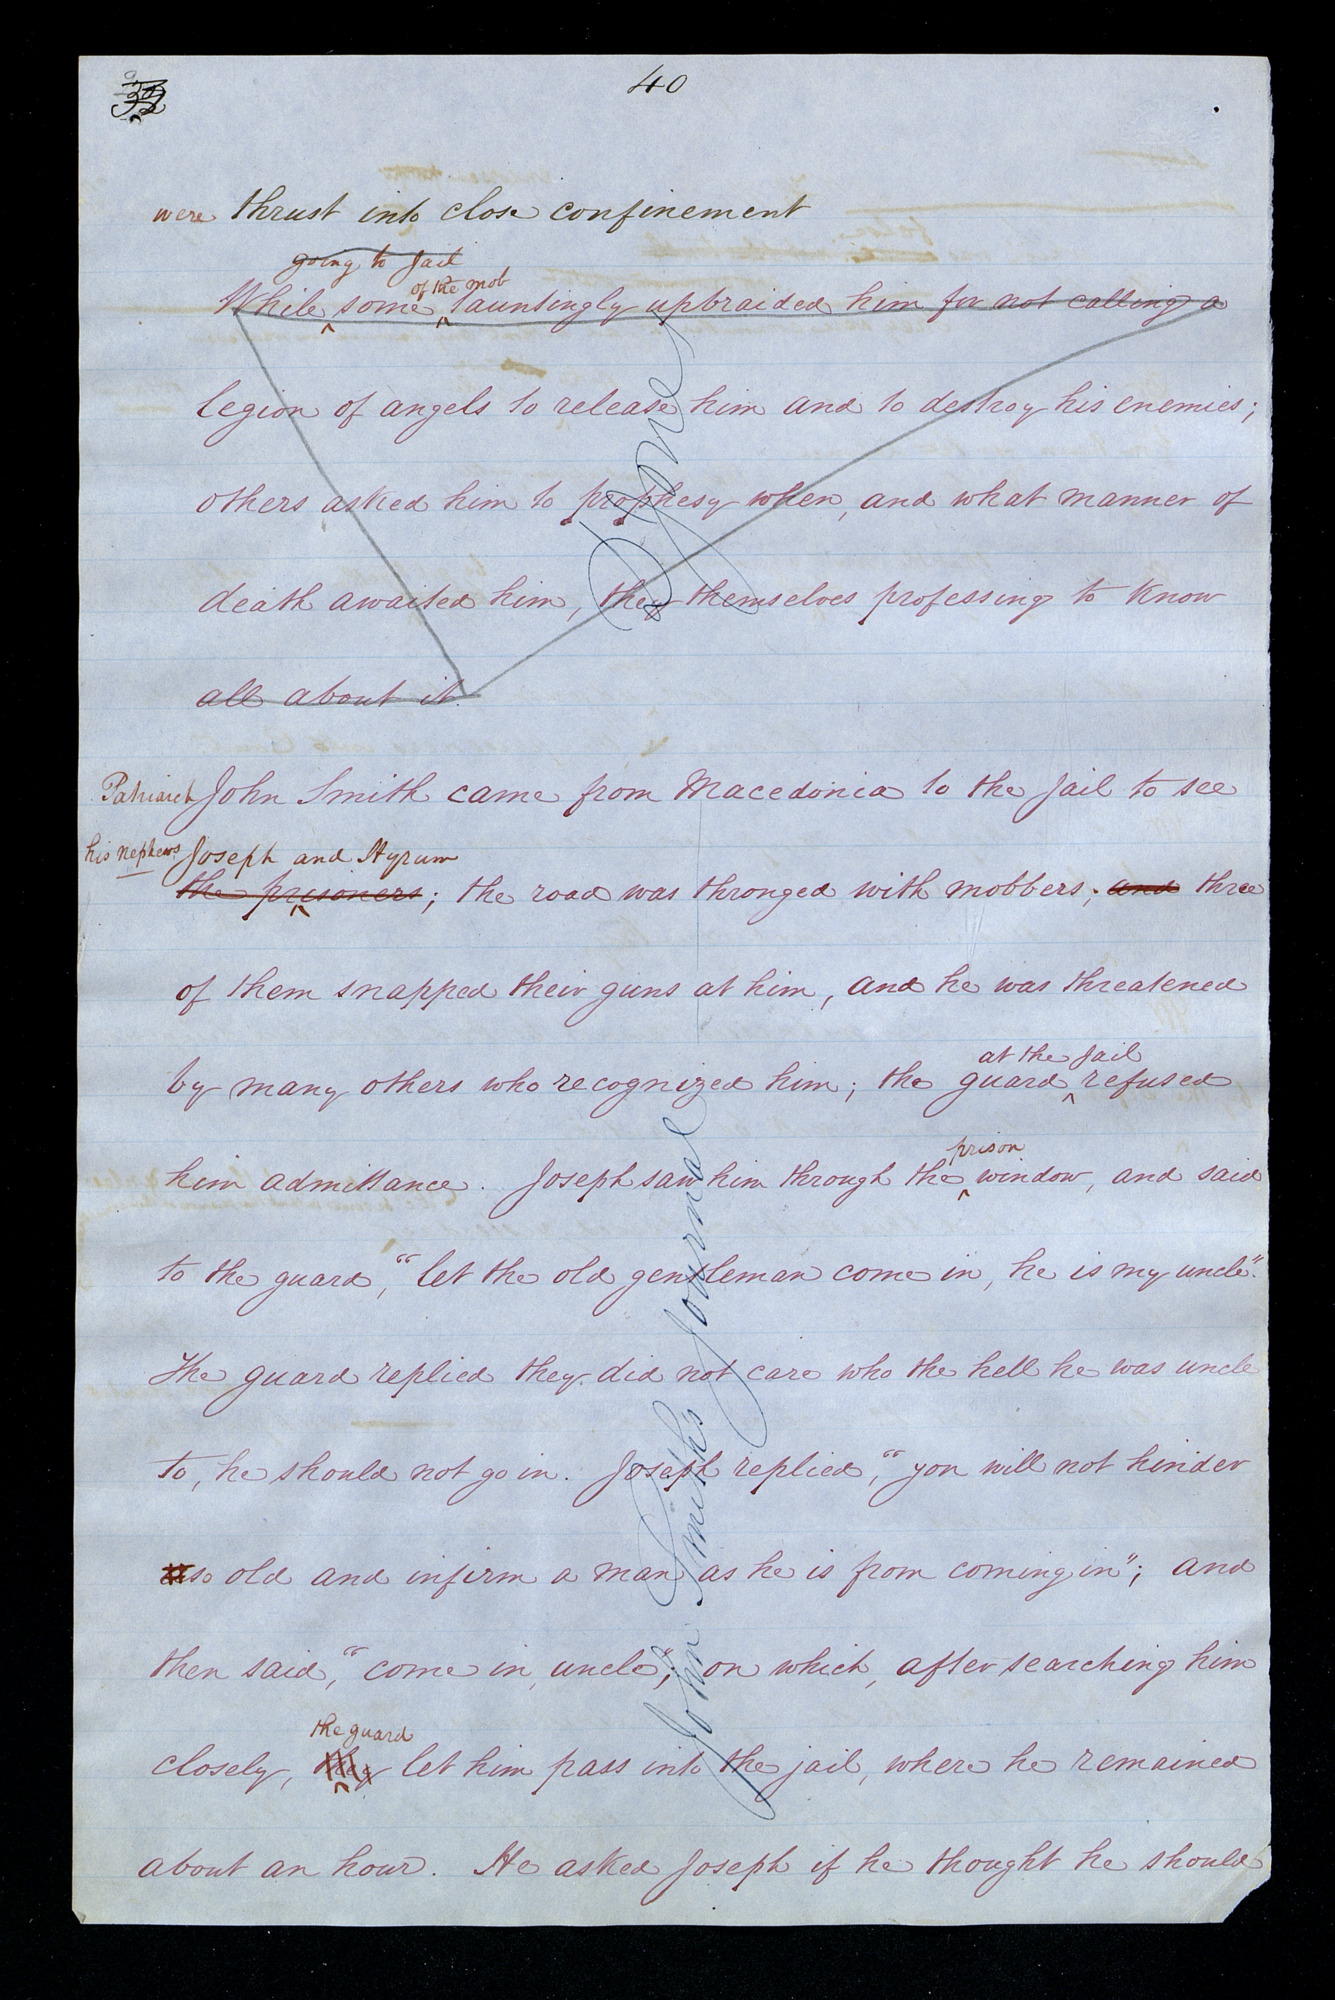 40
were thrust into close confinement
going to Jail
of the mob
While some tauntingly upbraided him for not calling a
legion of angels to release him and to destroy his enemies;
others asked him to prophesy when, and what manner of
death awaited him, they themselves professing to know
all about it.
Patriarch John Smith came from Macedonia to the jail to see
his nephews Joseph and Hyrum
the prisoners; the road was thronged with mobbers; and three
of them snapped their guns at him, and he was threatened
at the jail
by many others who recognized him; the guard refused
prison
him admittance. Joseph saw him through the window, and said
to the guard, "let the old gentleman come in, he is my uncle".
The guard replied they did not care who the hell he was uncle
to, he should not go in. Joseph replied, "you will not hinder
so old and infirm a man as he is from coming in"; and
then said, "come in, uncle"; on which, after searching him
the guard
closely, they let him pass into the jail, where he remained
about an hour. He asked Joseph if he thought he should
John Smith's Journal